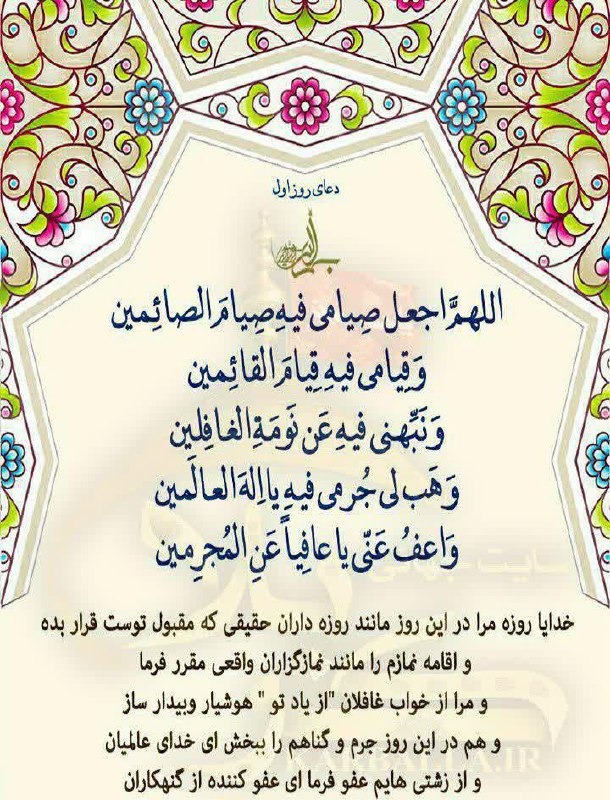 دعای روز اول
اللهمَّ اجعل صِیامی فیهِ صِیامَ الصائِمین
وَقِیامی فیهِ قِیامَ القائِمین
وَنَبِّهنی فیهِ عَن نَومَةِ الغافِلین
وَهَب لی جُرمی فیهِ یا اِلهَ العالَمین
وَاعفُ عَنّی یا عافِیاً عَنِ المُجرِمین
خدایا روزه مرا در این روز مانند روزه داران حقیقی که مقبول توست قرار بده
و اقامه نمازم را مانند نمازگزاران واقعی مقرر فرما
و مرا از خواب غافلان "از یاد تو " هوشیار وبیدار ساز
و هم در این روز جرم و گناهم را ببخش ای خدای عالمیان
و از زشتی هایم عفو فرما ای عفو کننده از گنهکاران
سایت جهانی
KARBALLA.IR